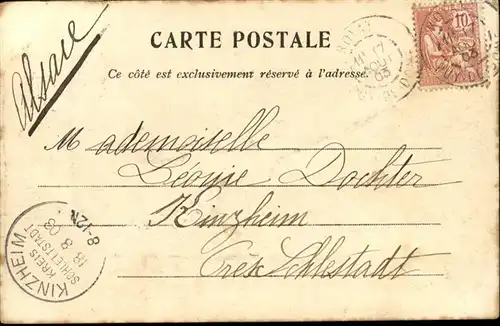 Alsace
CARTE POSTALE
Ce côté est exclusivement réservé à l'adresse.
17
AOUT
03
10
Mademoiselle
Léonie Dochter
Kinzheim
Près Schlestadt
KINZHEIM
KREIS
SCHLETTSTADT
18 8 03
8-12N